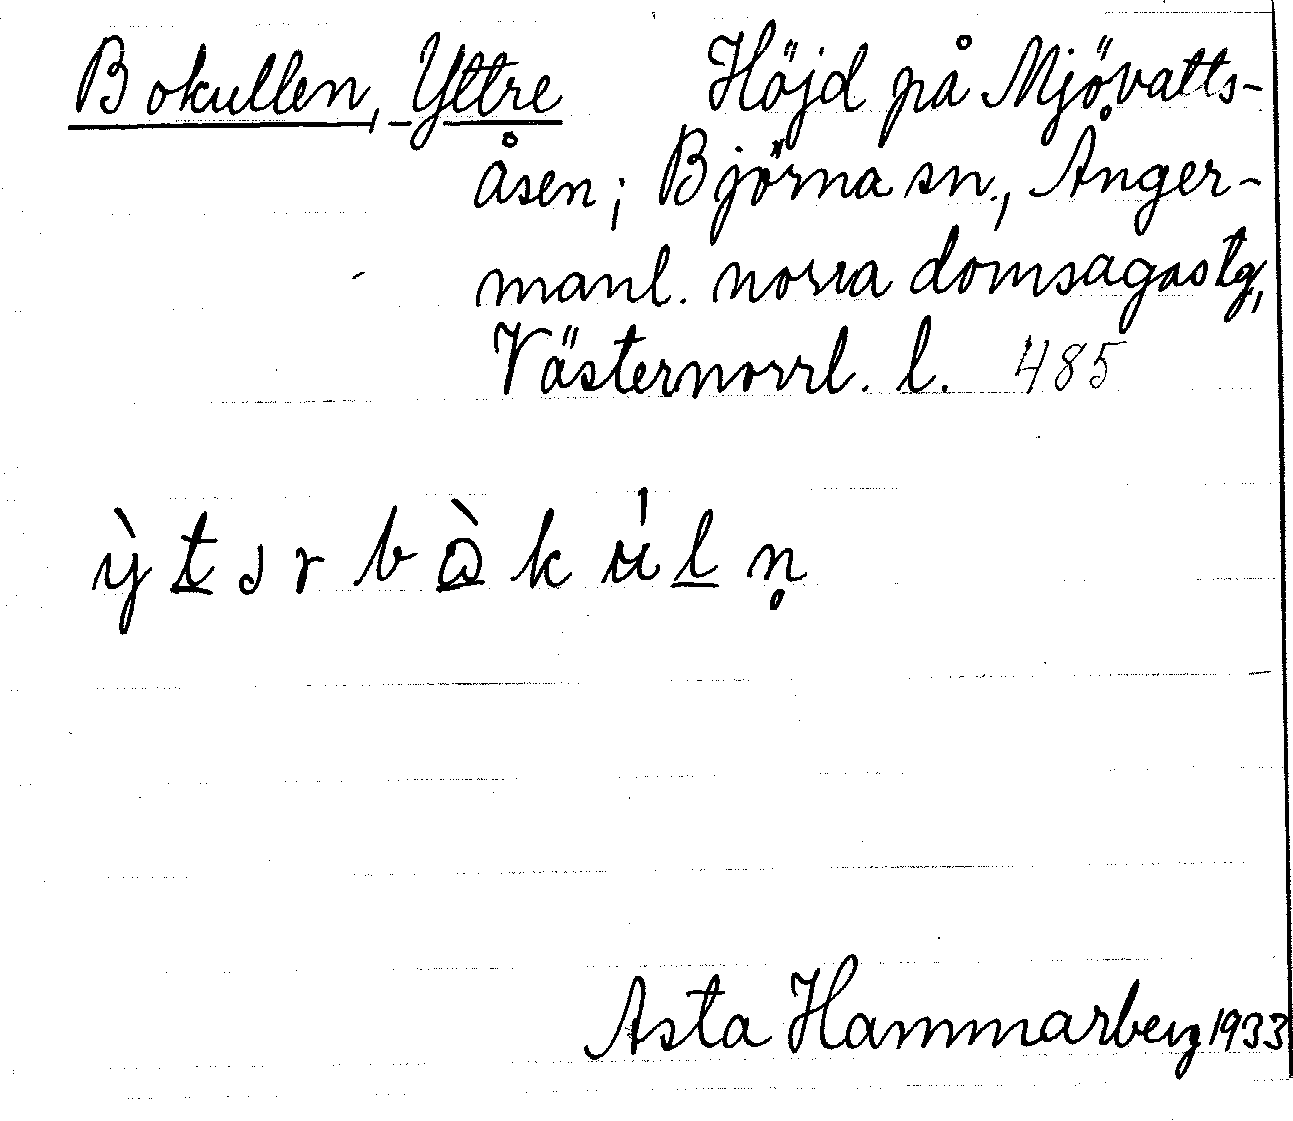 Bokullen, Yttre Höjd på Mjövatts-
åsen; Björna sn., Ånger-
manl. norra domsagas tg,
Västernorrl. l. 485
Asta Hammarberg 1933